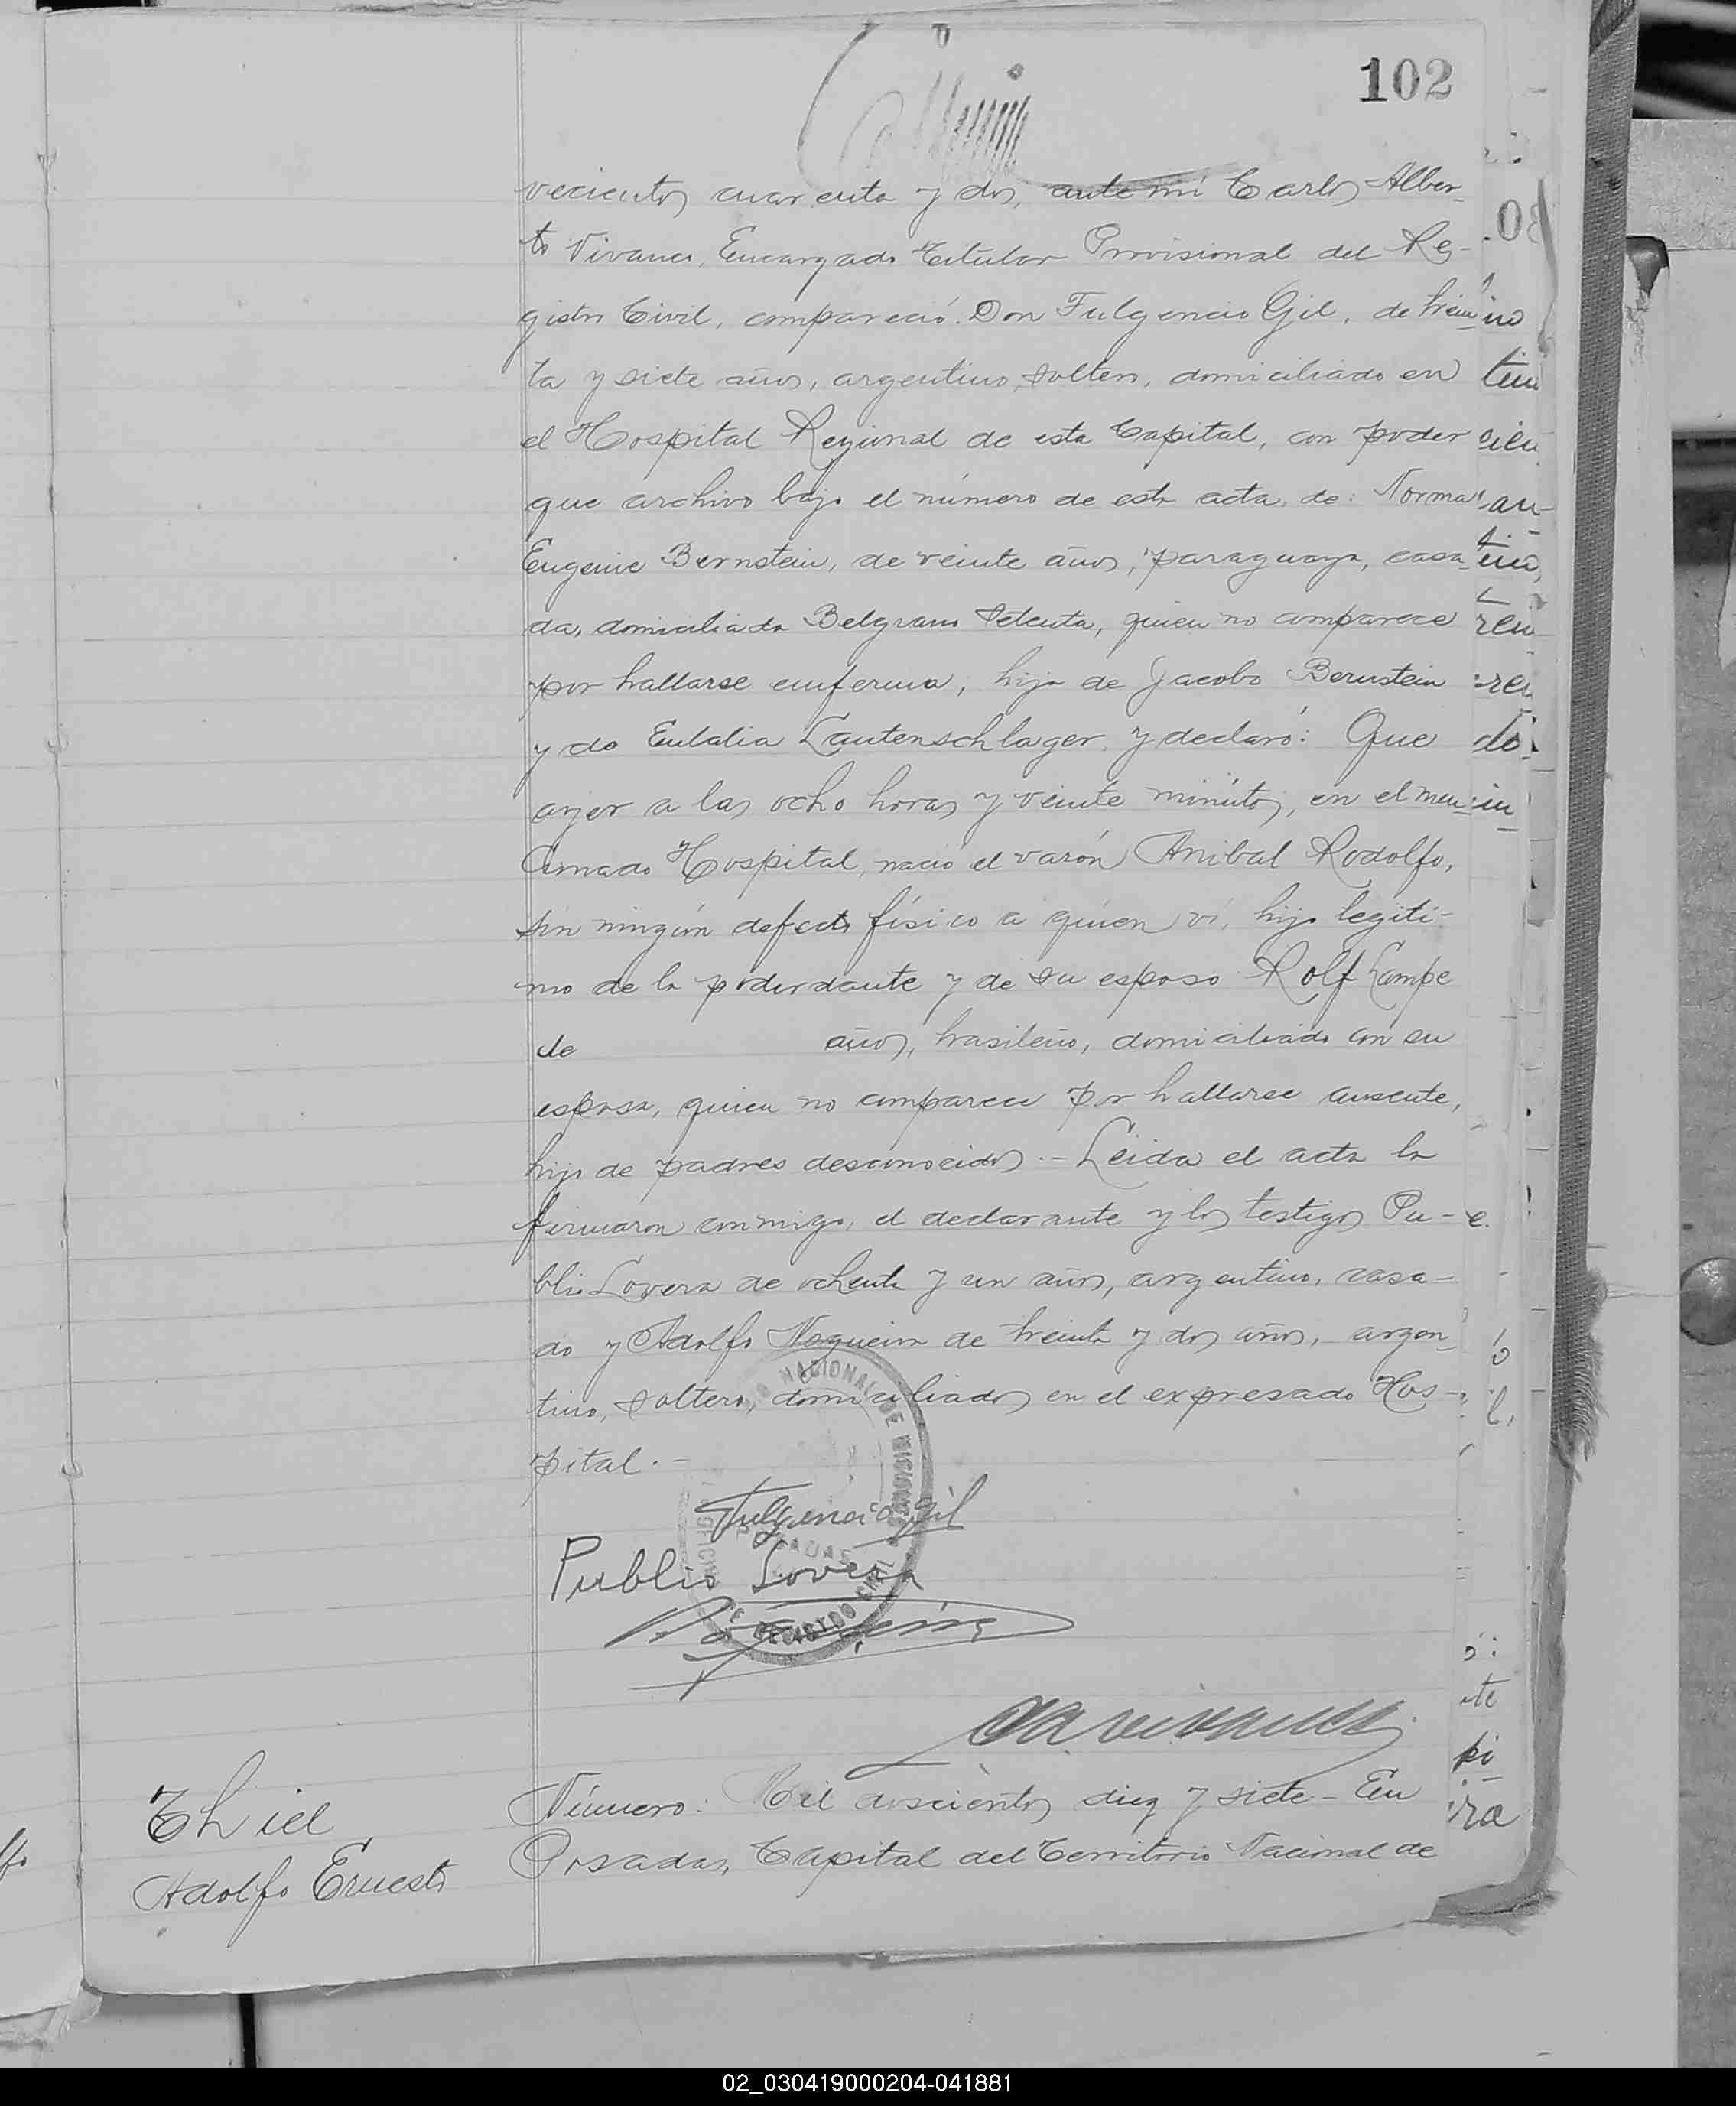 102
vecientos cuarenta y dos, ante mi Carlos Alber-
to Vivanco, Encargado Titular Provisional del Re-
gistro Civil, compareció: Don Fulgencio Gil, de trein-
ta y siete años, argentino, soltero, domiciliado en
el Hospital Regional de esta Capital, con poder
que archivo bajo el número de esta acta, de: Norma
Eugenie Bernstein, de veinte años, paraguaya, casa-
da, domiciliada Belgrano setenta, quien no comparece
por hallarse enferma, hija de Jacobo Bernstein
y de Eulalia Lautenschlager, y declaró: Que
ayer a las ocho horas y veinte minutos, en el men-
cionado Hospital, nació el varón Anibal Rodolfo,
sin ningún defecto físico a quien ví, hijo legíti-
mo de la poderdante y de su esposo Rolf Lampe
de años, brasileño, domiciliado con su
esposa, quien no comparece por hallarse ausente,
hijo de padres desconocidos.- Leida el acta la
firmaron conmigo, el declarante y los testigos Pu-
blio Lovera de ochenta y un años, argentino, casa-
do y Adolfo Nogueira de treinta y dos años, argen-
tino, soltero, domiciliados en el expresado Hos-
pital.-
Fulgencio Gil
Publio Lovera
Thiel
Adolfo Ernesto
Número: Mil doscientos diez y siete - En
Posadas, Capital del Territorio Nacional de
02_030419000204-041881